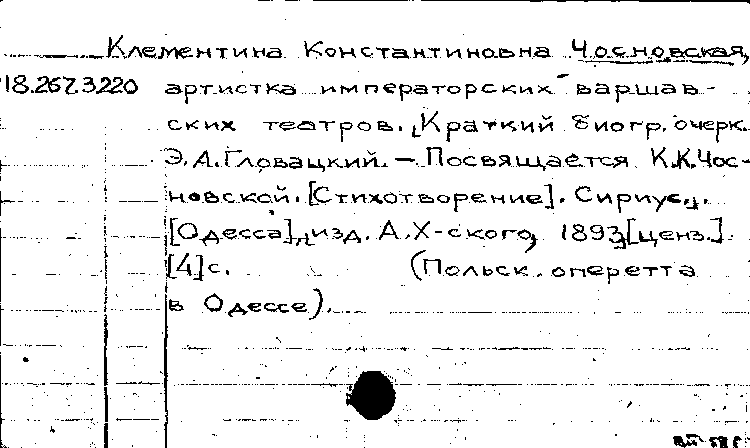 Клементина Константиновна Чосновская,
18.267.3220 артистка императорских варшав-
ских театров. Краткий биогр. очерк.
Э.А.Гловацкий. — Посвящается К.К.Чос-
новской. [Стихотворение]. Сириус.
[Одесса], изд. А.Х-ского, 1893 [ценз.].
[4] с. (Польск. оперетта
в Одессе).